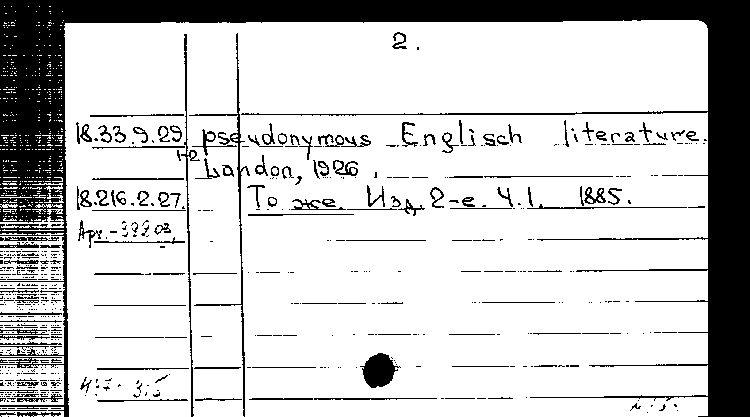 2.
18.33.9.29. pseudonymous Englisch literature.
1-2
London, 1926.
18.216.2.27. То же. Изд. 2-е. Ч.1. 1885.